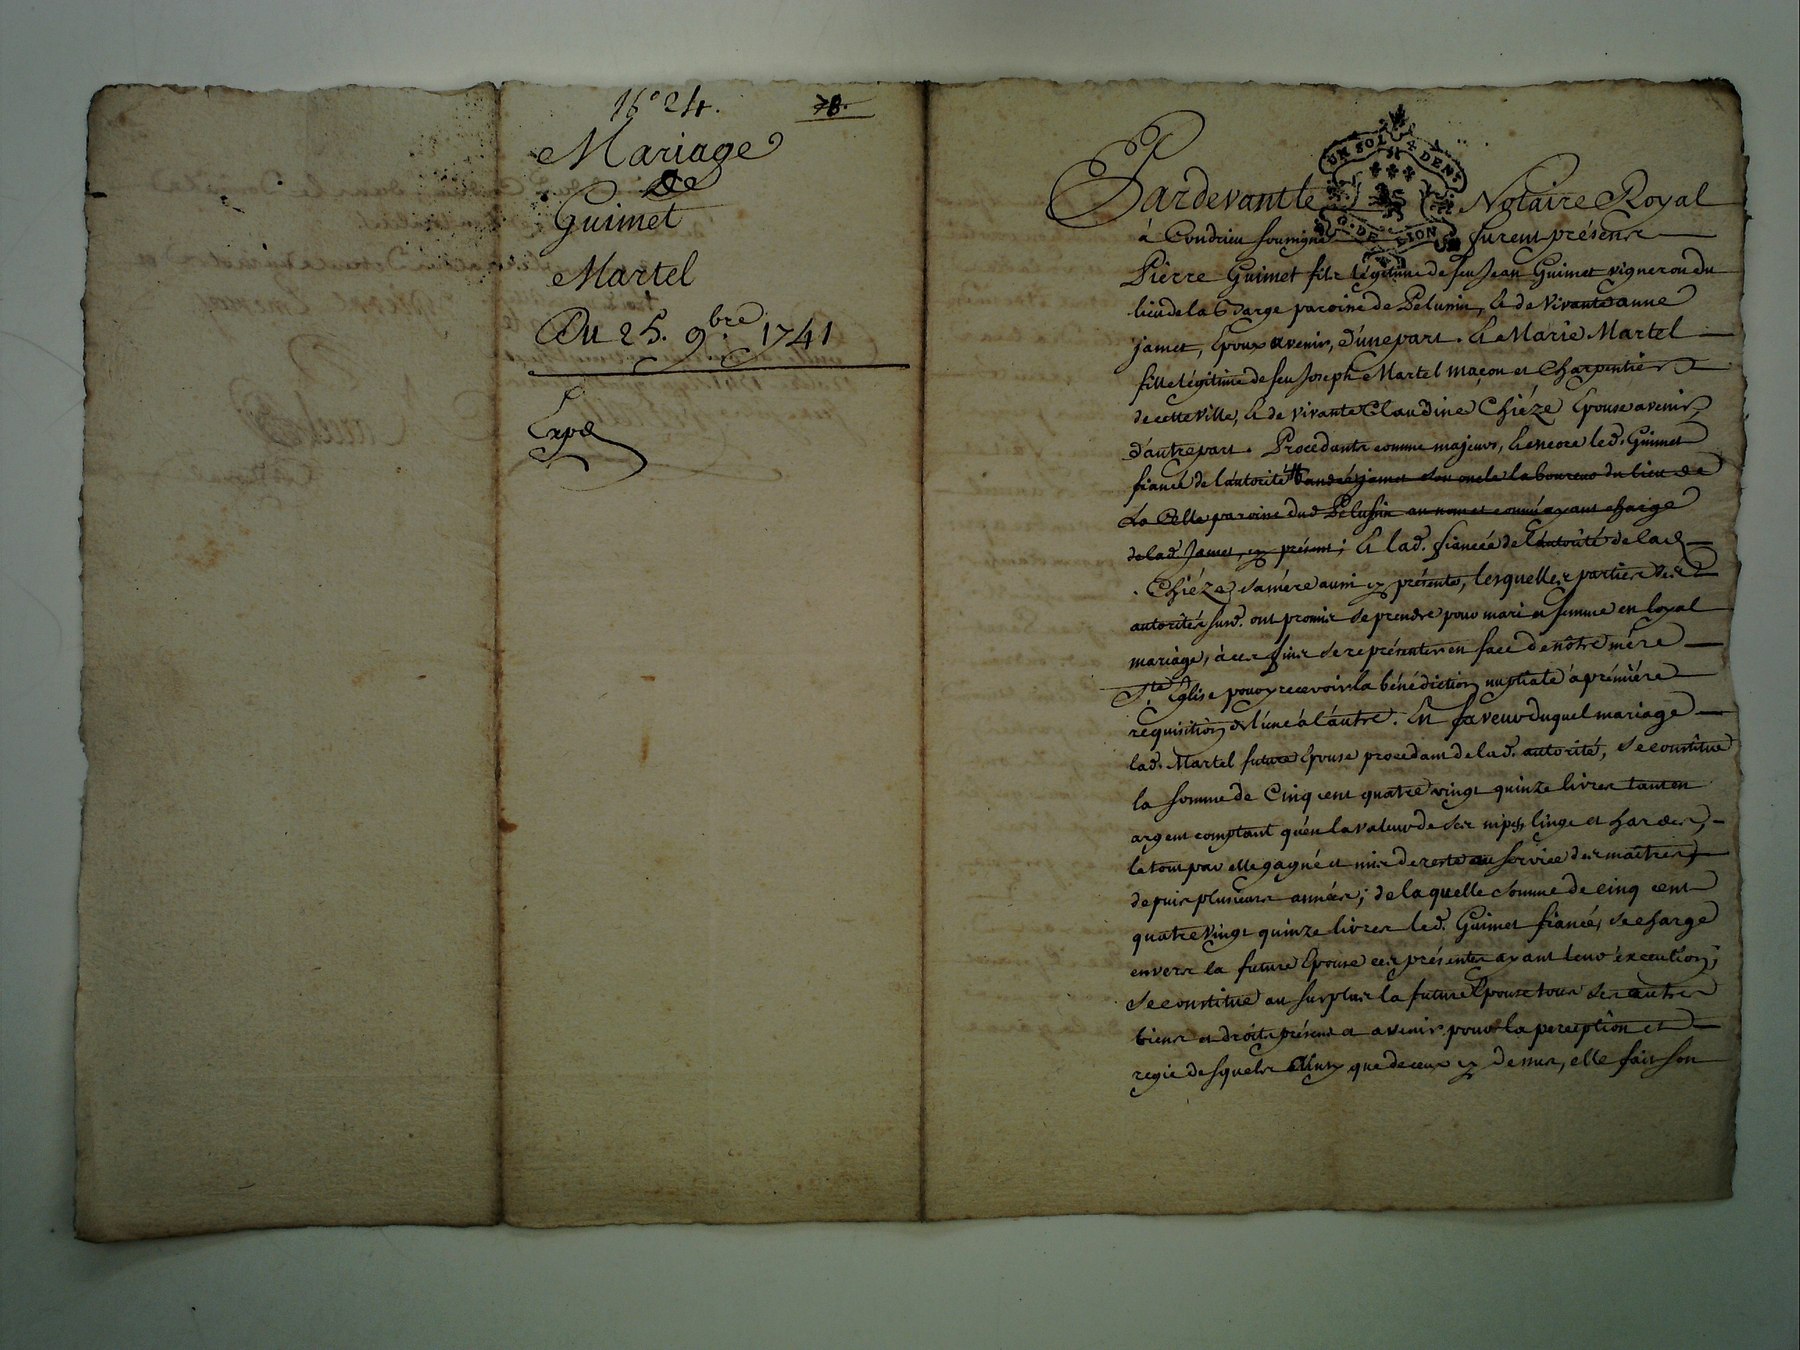 N° 24.
78.
Mariage
De
Guimet
Martel
Du 25. 9bre 1741
Expd
UN SOL 4 DENS
G. DE LION
Pardevant le Notaire Royal
à Condrieu soussigné furent présens
Pierre Guimet fils légitime de feu Jean Guimet vigneron du
lieu de la Varge paroisse de Pelussin, & de vivante anne
jamet, Epoux avenir, d'une part. & Marie Martel
fille légitime de feu Joseph Martel maçon et Charpentier
de cette ville, & de vivante Claudine Chiéze Epouse avenir,
d'autre part. Procedants comme majeurs, & encore led. Guimet
fiancé de l'autorité d'andré jamet son oncle laboureur du lieu de
la Celle paroisse dud. Pelussin au nom et comme ayant charge
de lad. Jamet, cy présent; & lad. fiancée de l'autorité de lad.
Chiéze sa mère aussi cy présente, lesquelles parties des
autorités susd. ont promis se prendre pour mari et femme en loyal
mariage, à ces fins se représenter en face de nôtre mère
Ste Eglise pour y recevoir la bénédiction nuptiale à prémière
requisition de l'une à l'autre. En faveur duquel mariage
lad. Martel future Epouse procedant de lad. autorité, se constitue
la somme de Cinq cent quatre vingt quinze livres tant en
argent comptant qu'en la valeur de ses nipes, linge et hardes,
le tout par elle gagné et mis de reste au service des maîtres
depuis plusieurs années; de laquelle somme de cinq cent
quatre vingt quinze livres led. Guimet fiancé, se charge
envers la future Epouse ces présentes ayant leur éxecution;
Se constitue au surplus la future Epouse tous ses autres
biens et droits présens et avenir, pour la perception et
regie desquels que de ceux cy dessus, elle fait son